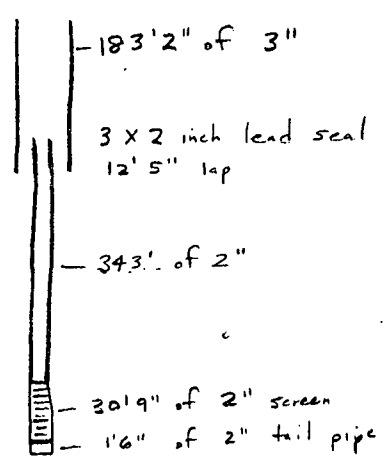 183'2" of 3"
3 X 2 inch lead seal
12' 5" lap
343.'. of 2"
30'9" of 2" screen
1'6" of 2" tail pipe